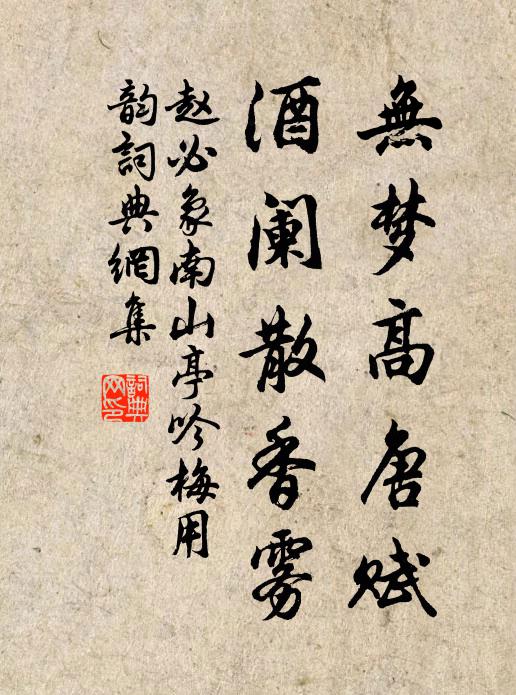 無梦高唐赋
酒阑散香雾
赵必象南山亭吟梅用
韵詞典網集
詞典
网印